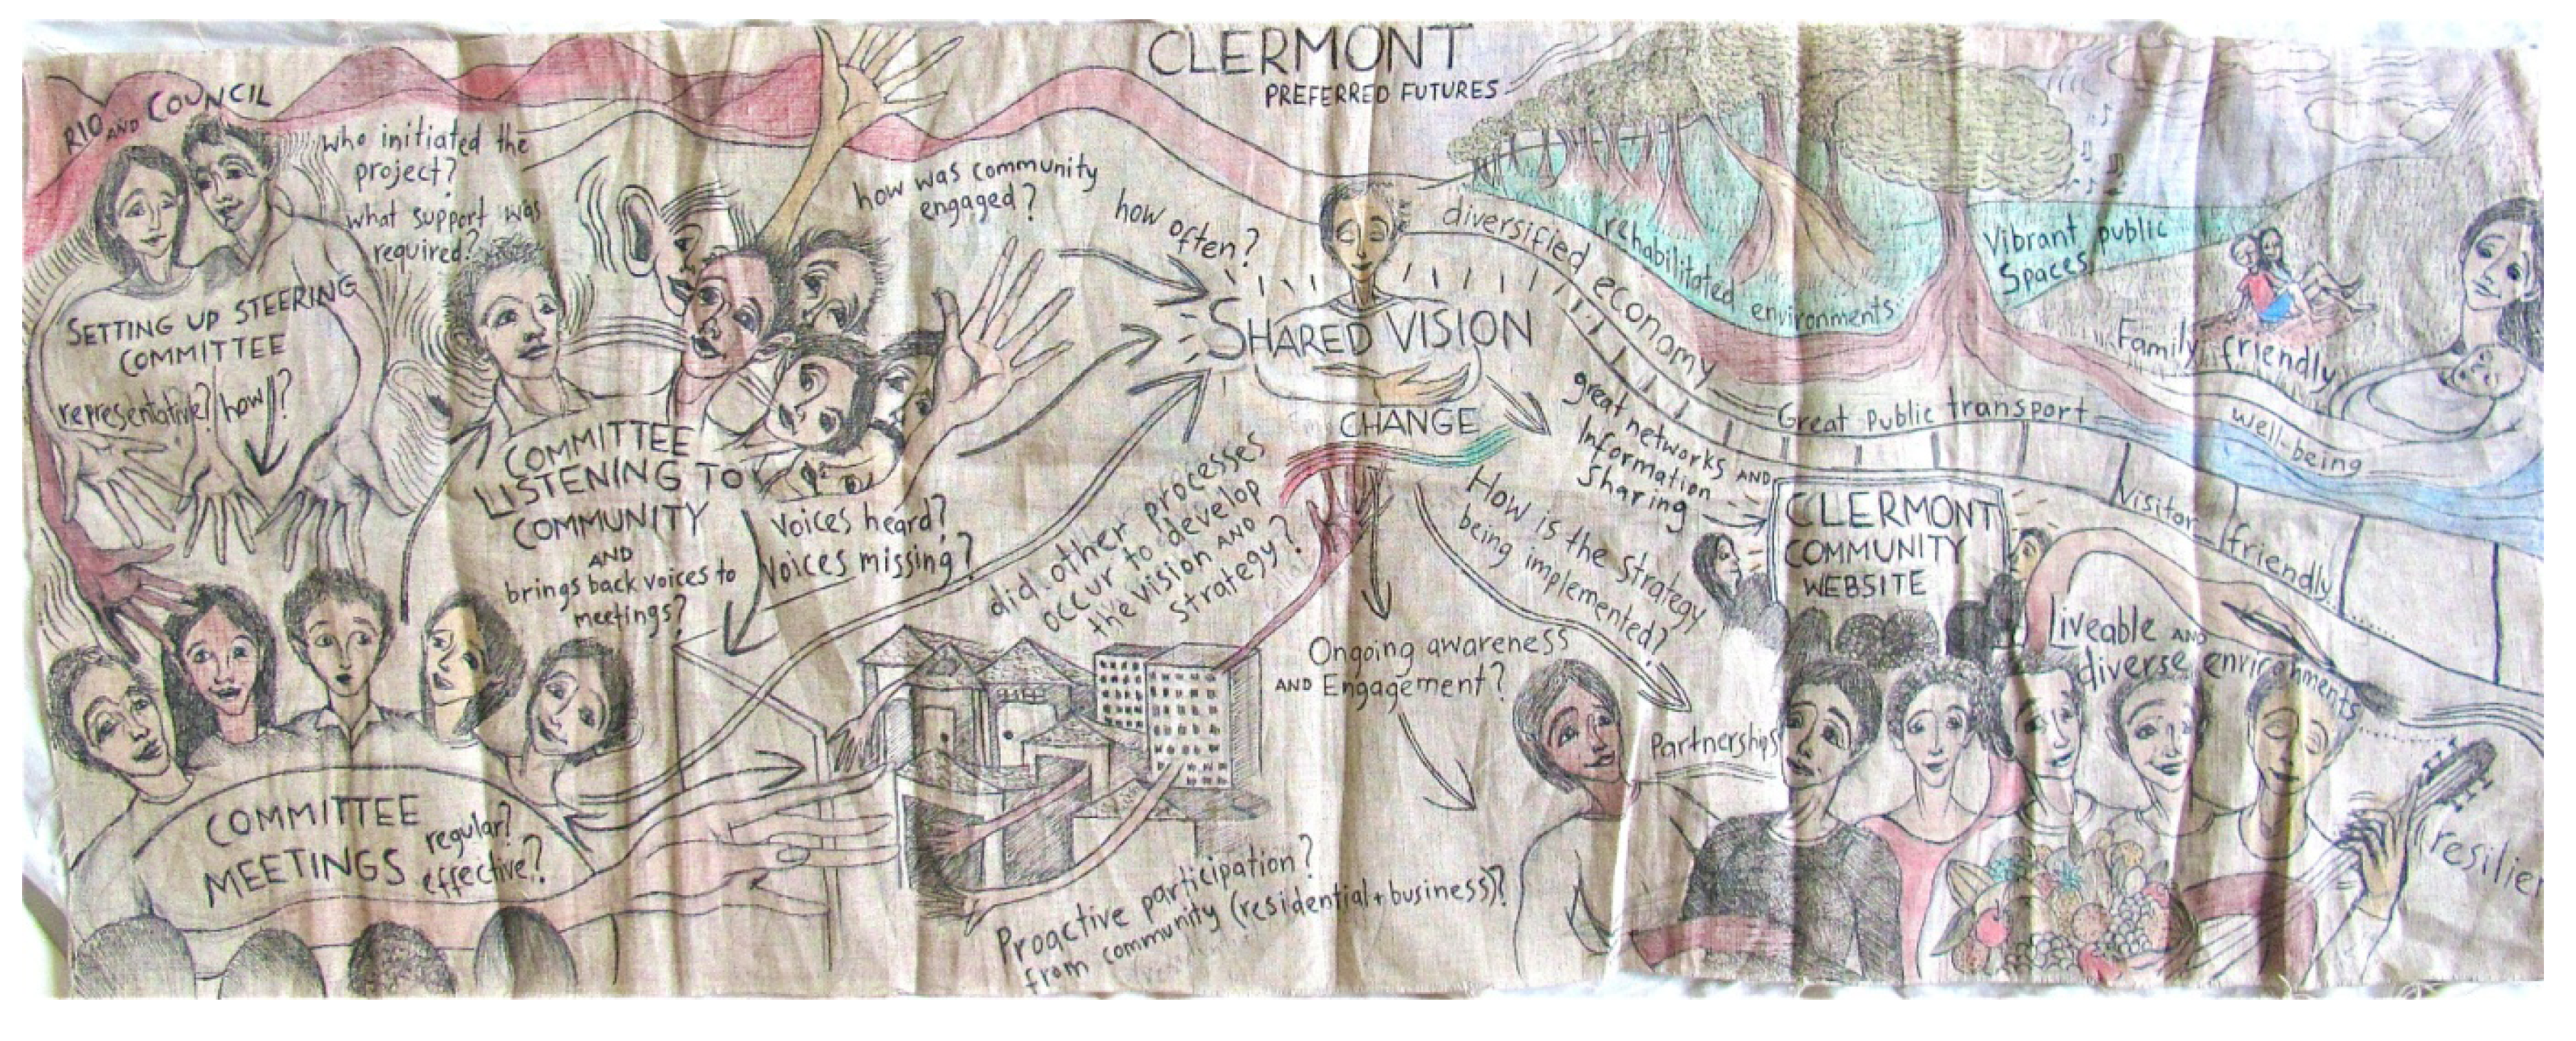 CLERMONT
PREFERRED FUTURES
RIO AND COUNCIL
who initiated the
project?
what support was
required?
SETTING UP STEERING
COMMITTEE
representative? how!?
COMMITTEE
LISTENING TO
COMMUNITY
AND
brings back voices to
meetings?
Voices heard?
Voices missing?
COMMITTEE
MEETINGS
regular?
effective?
how was community
engaged?
how often?
SHARED VISION
CHANGE
did other processes
occur to develop
the vision AND
strategy?
Ongoing awareness
AND Engagement?
How is the strategy
being implemented?
Proactive participation?
from community (residential + business)?
Partnerships
diversified economy
rehabilitated environments
Vibrant public
Spaces
Family friendly
Great public transport
well-being
great networks AND
Information
Sharing
CLERMONT
COMMUNITY
WEBSITE
Visitor friendly
Liveable AND
diverse environments
resilien